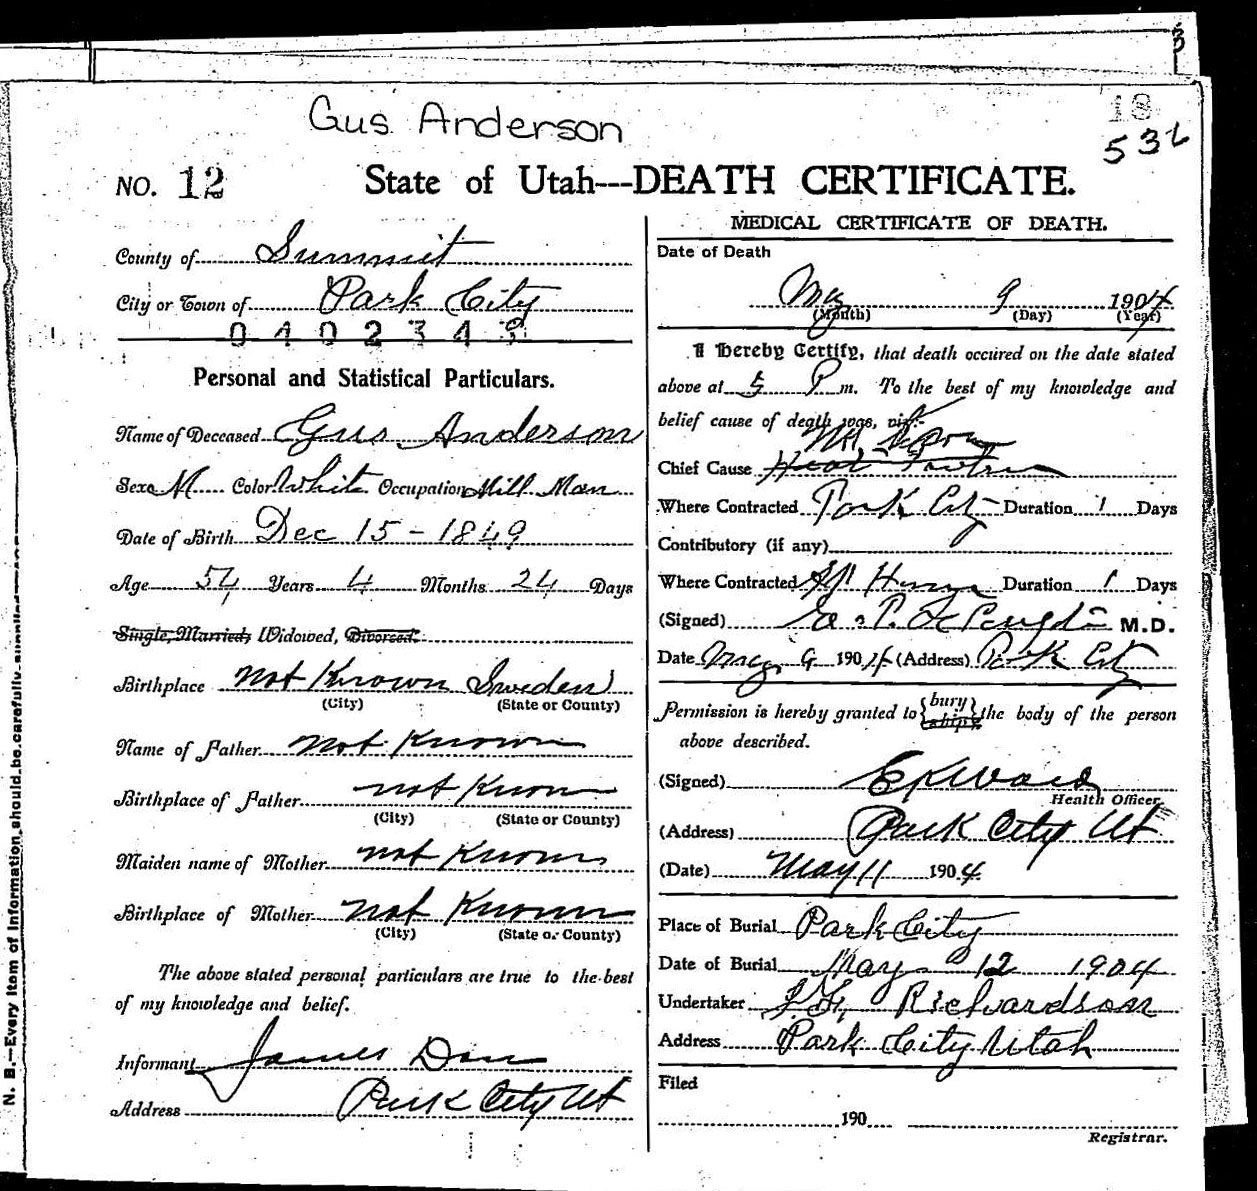 Gus Anderson
18
532
NO. 12 State of Utah---DEATH CERTIFICATE.
County of Summit
City or Town of Park City
0402343
Personal and Statistical Particulars.
Name of Deceased Gus Anderson
Sex M Color White Occupation Mill Man
Date of Birth Dec 15 - 1849
Age 54 Years 4 Months 24 Days
Single, Married, Widowed, Divorced.
Birthplace not Known Sweden
(City) (State or County)
Name of Father not Known
Birthplace of Father not Known
(City) (State or County)
Maiden name of Mother not Known
Birthplace of Mother not Known
(City) (State or County)
The above stated personal particulars are true to the best
of my knowledge and belief.
Informant James Don
Address Park City Ut
MEDICAL CERTIFICATE OF DEATH.
Date of Death
May 9 1904
(Month) (Day) (Year)
I Hereby Certify, that death occured on the date stated
above at 5 P m. To the best of my knowledge and
belief cause of death was, viz:-
Chief Cause
Where Contracted Park City Duration 1 Days
Contributory (if any)
Where Contracted Duration 1 Days
(Signed) M.D.
Date May 9 1904 (Address) Park City
Permission is hereby granted to {bury ship} the body of the person
above described.
(Signed) E P Ward
Health Officer
(Address) Park City Ut
(Date) May 11 1904
Place of Burial Park City
Date of Burial May 12 1904
Undertaker Richardson
Address Park City Utah
Filed
190
Registrar.
N. B.—Every item of information should be carefully supplied